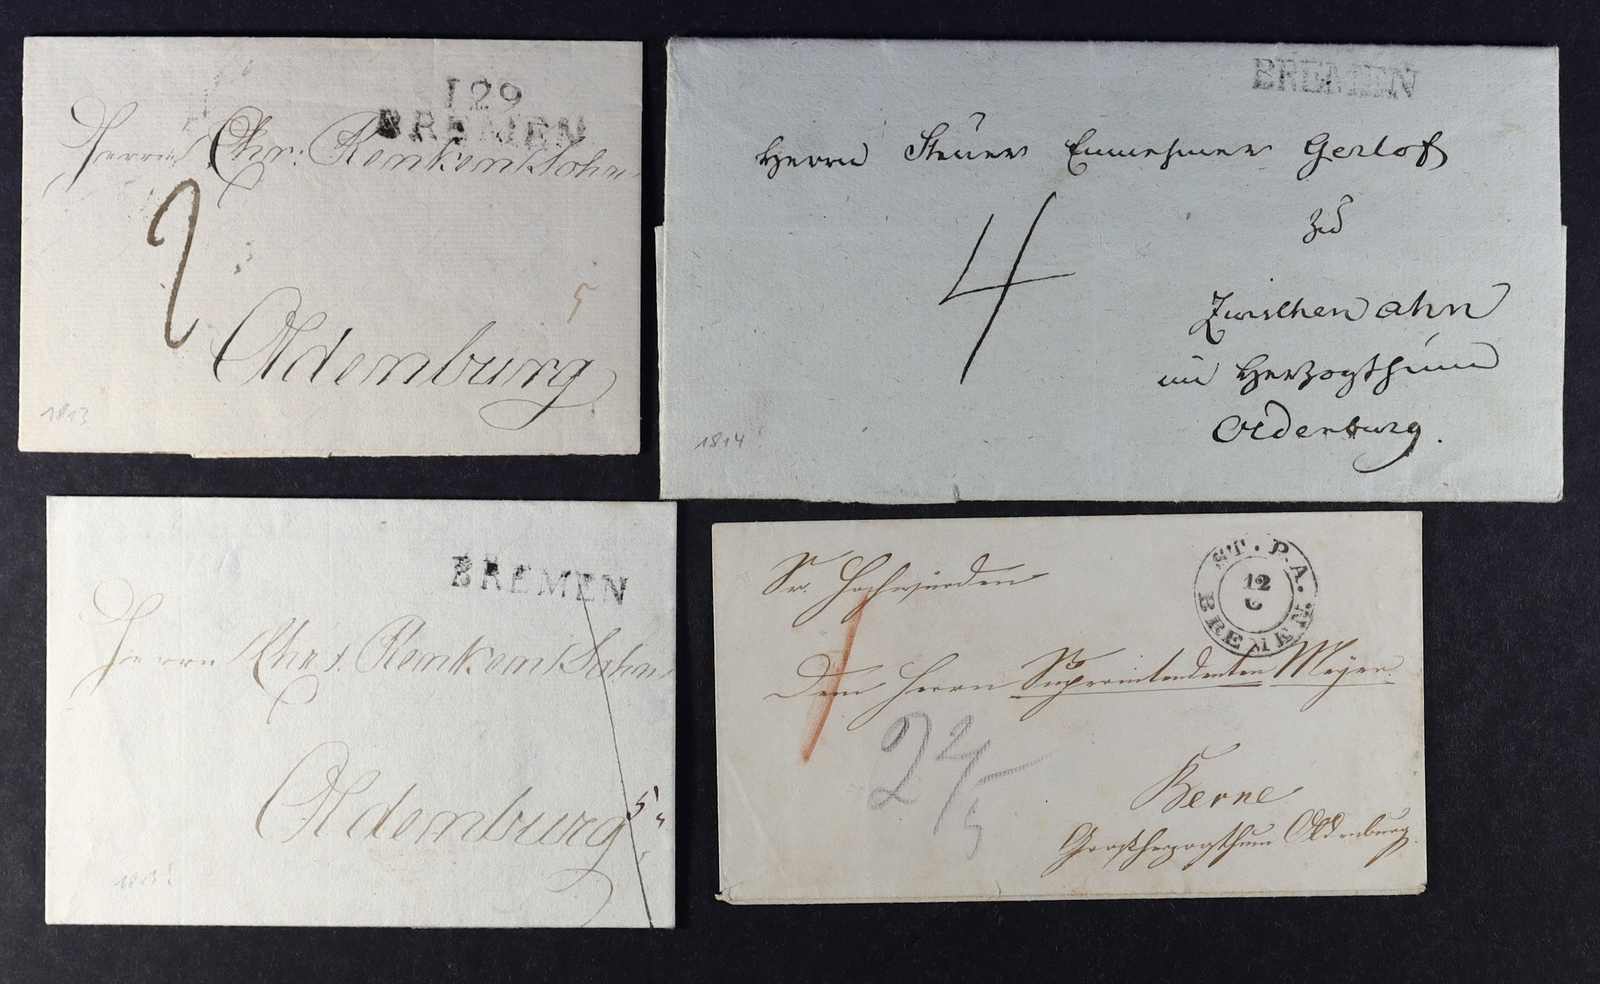 129
BREMEN
Herrn Chr: Renken Sohn
2
5
Oldenburg
1813
BREMEN
Herrn Steuer Einnehmer Gerlof
zu
4
Zwischen ahn
im Herzogthum
Oldenburg.
1814
BREMEN
Herrn Chr. Renken Sohn
Oldenburg
5
ST. P. A. BREMEN
12
6
Sr. Hochwürden
Dem Herrn Superintendenten Meyer
Berne
Großherzogthum Oldenburg.